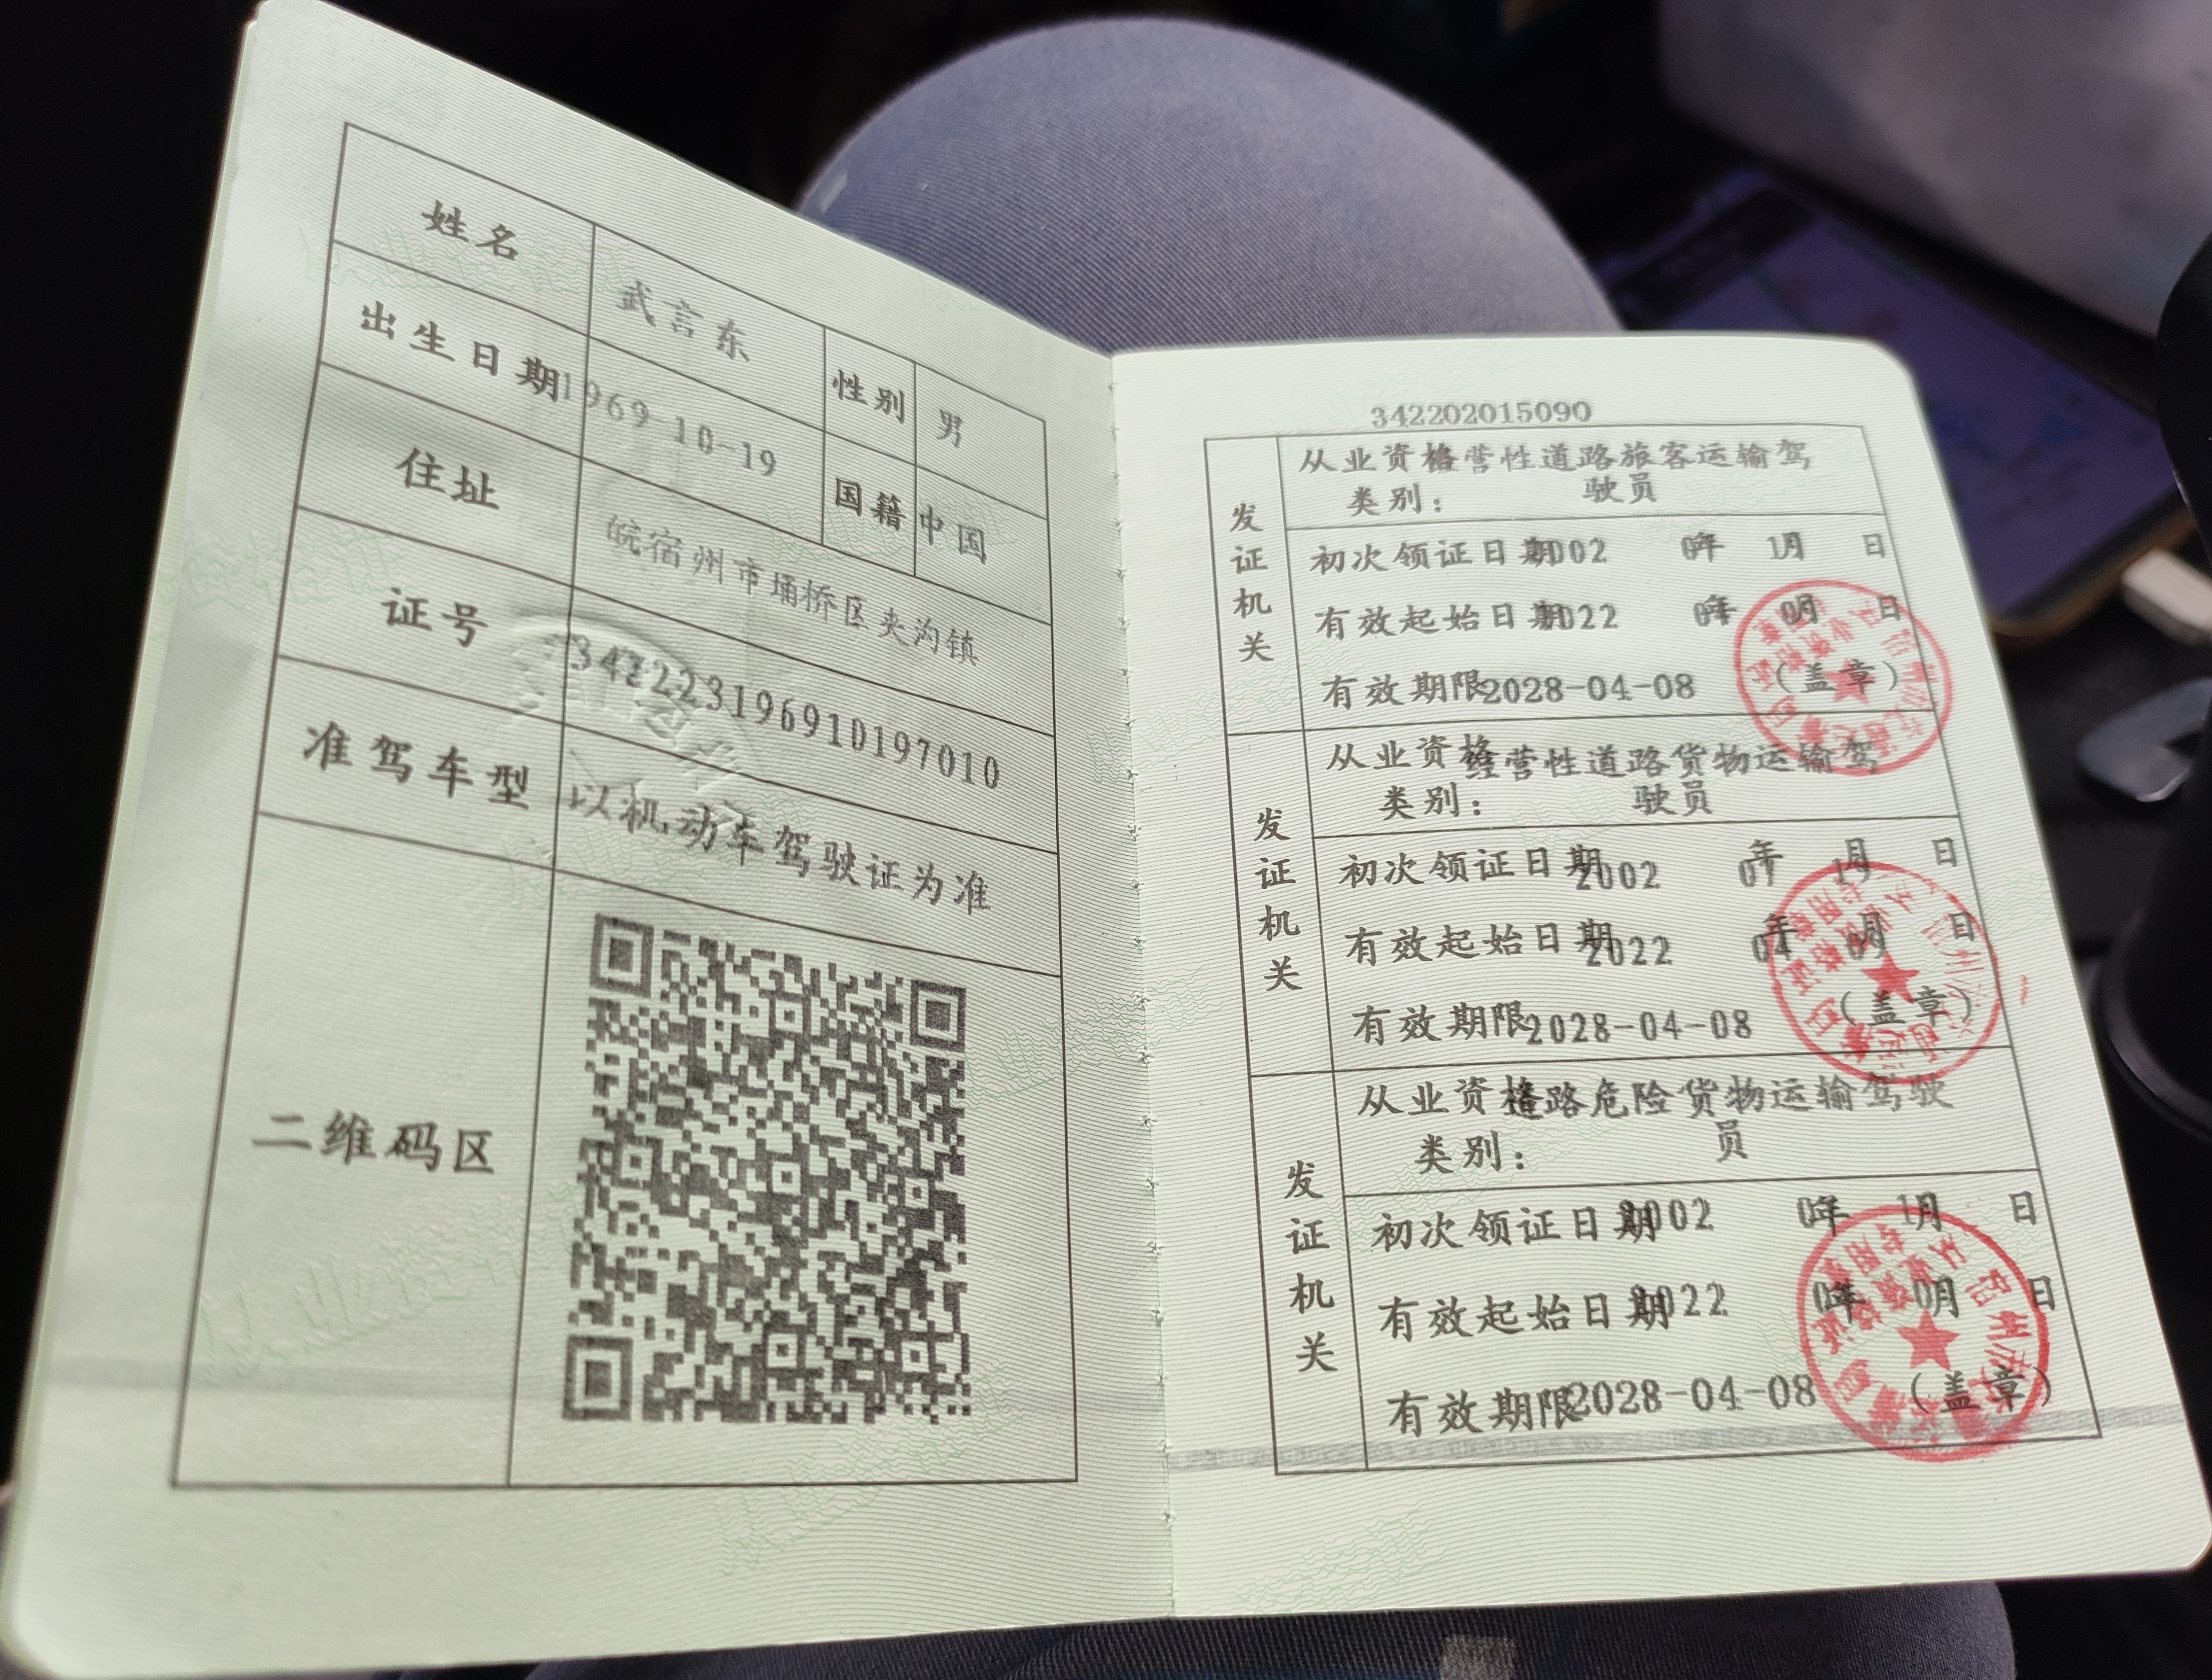 姓名 武言东 性别 男
出生日期 1969-10-19 国籍 中国
住址 皖宿州市埇桥区夹沟镇
证号 342223196910197010
准驾车型 以机动车驾驶证为准
二维码区
342202015090
发证机关
从业资格 经营性道路旅客运输驾
类别： 驶员
初次领证日期 2002 年 月 日
有效起始日期 2022 年 月 日
有效期限 2028-04-08
（盖章）
发证机关
从业资格 经营性道路货物运输驾
类别： 驶员
初次领证日期 2002 年 月 日
有效起始日期 2022 04 年 09 月 日
有效期限 2028-04-08
（盖章）
发证机关
从业资格 道路危险货物运输驾驶
类别： 员
初次领证日期 2002 年 月 日
有效起始日期 2022 年 月 日
有效期限 2028-04-08
（盖章）